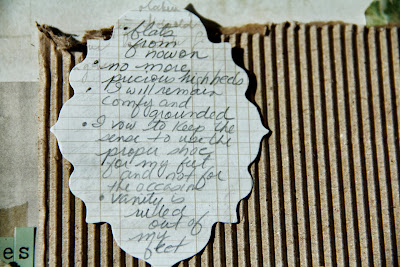 • flats
from
now on
• no more
precious high heels
• I will remain
comfy and
grounded
• I vow to keep the
sense to use the
proper shoe
for my feet
and not for
the occasion
• Vanity is
ruled
out of
my
feet
es